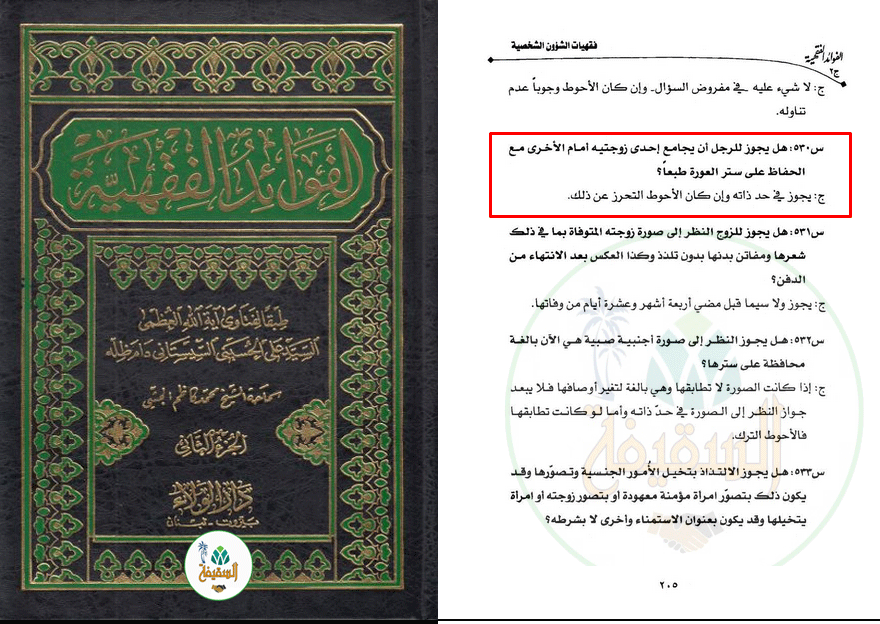 الفوائد الفقهية
طبقا لفتاوى آية الله العظمى
السيد علي الحسيني السيستاني دام ظله
سماحة الشيخ محمد كاظم الجشي
الجزء الثاني
دار الولاء
بيروت - لبنان
السقيفة
فقهيات الشؤون الشخصية
الفوائد الفقهية
ج٢
ج: لا شيء عليه في مفروض السؤال. وإن كان الأحوط وجوباً عدم
تناوله.
س٥٣٠: هل يجوز للرجل أن يجامع إحدى زوجتيه أمام الأخرى مع
الحفاظ على ستر العورة طبعاً؟
ج: يجوز في حد ذاته وإن كان الأحوط التحرز عن ذلك.
س٥٣١: هل يجوز للزوج النظر إلى صورة زوجته المتوفاة بما في ذلك
شعرها ومفاتن بدنها بدون تلذذ وكذا العكس بعد الانتهاء من
الدفن؟
ج: يجوز ولا سيما قبل مضي أربعة أشهر وعشرة أيام من وفاتها.
س٥٣٢: هل يجوز النظر إلى صورة أجنبية صبية هي الآن بالغة
محافظة على سترها؟
ج: إذا كانت الصورة لا تطابقها وهي بالغة لتغير أوصافها فلا يبعد
جواز النظر إلى الصورة في حدّ ذاته وأما لو كانت تطابقها
فالأحوط الترك.
س٥٣٣: هل يجوز الالتذاذ بتخيل الأُمور الجنسية وتصوّرها وقد
يكون ذلك بتصوّر امراة مؤمنة معهودة أو بتصور زوجته او امراة
يتخيلها وقد يكون بعنوان الاستمناء وأخرى لا بشرطه؟
السقيفة
٢٠٥